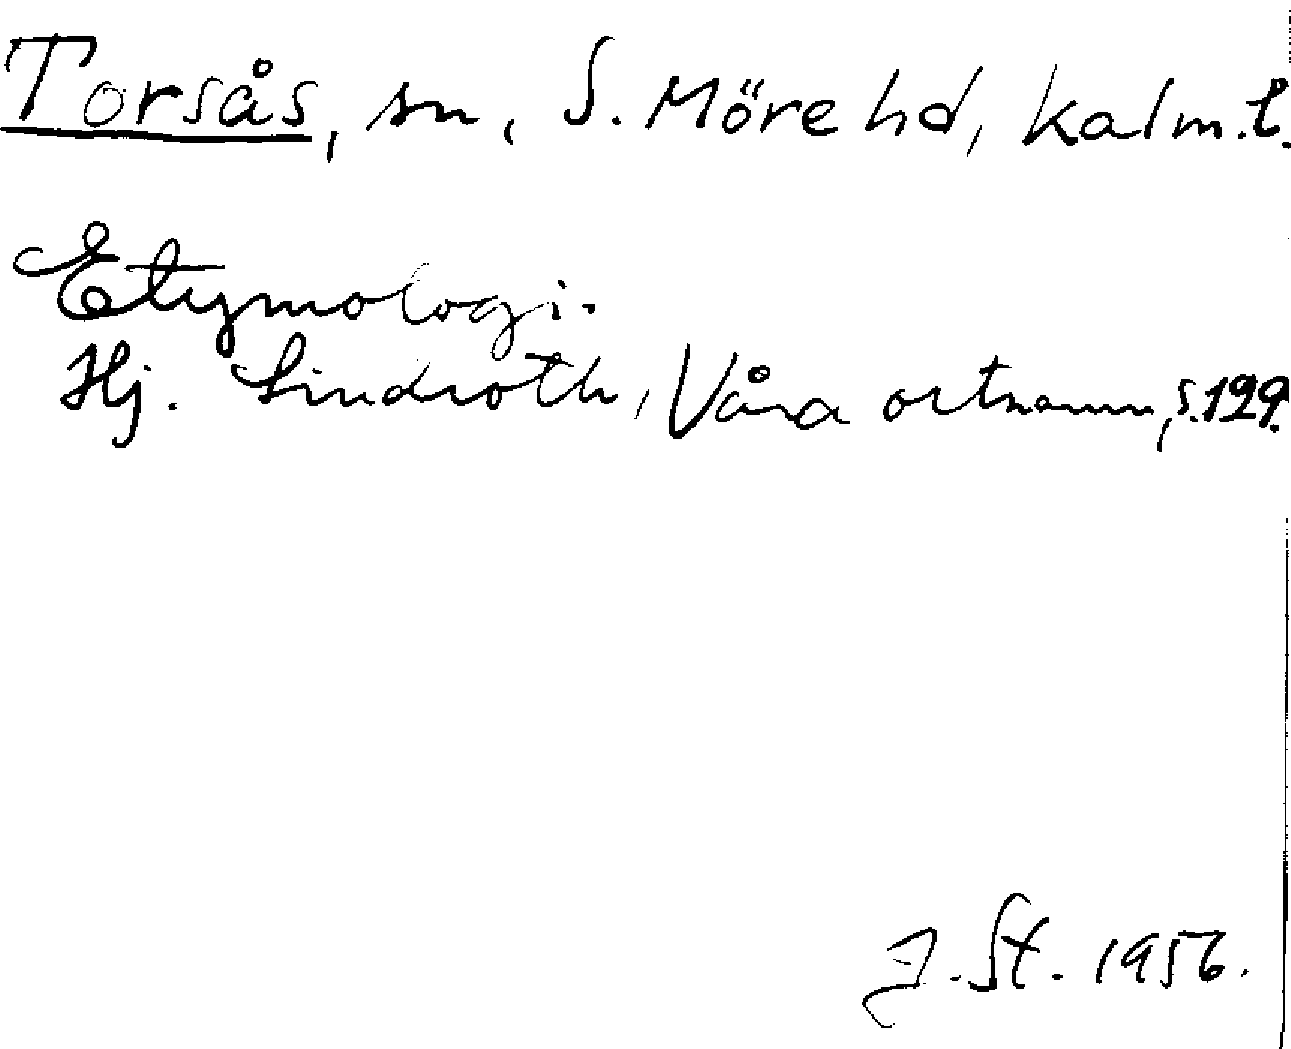 Torsås, sn, S. Möre hd, Kalm. l.
Etymologi.
Hj. Lindroth, Våra ortnamn, s. 129.
J. St. 1956.